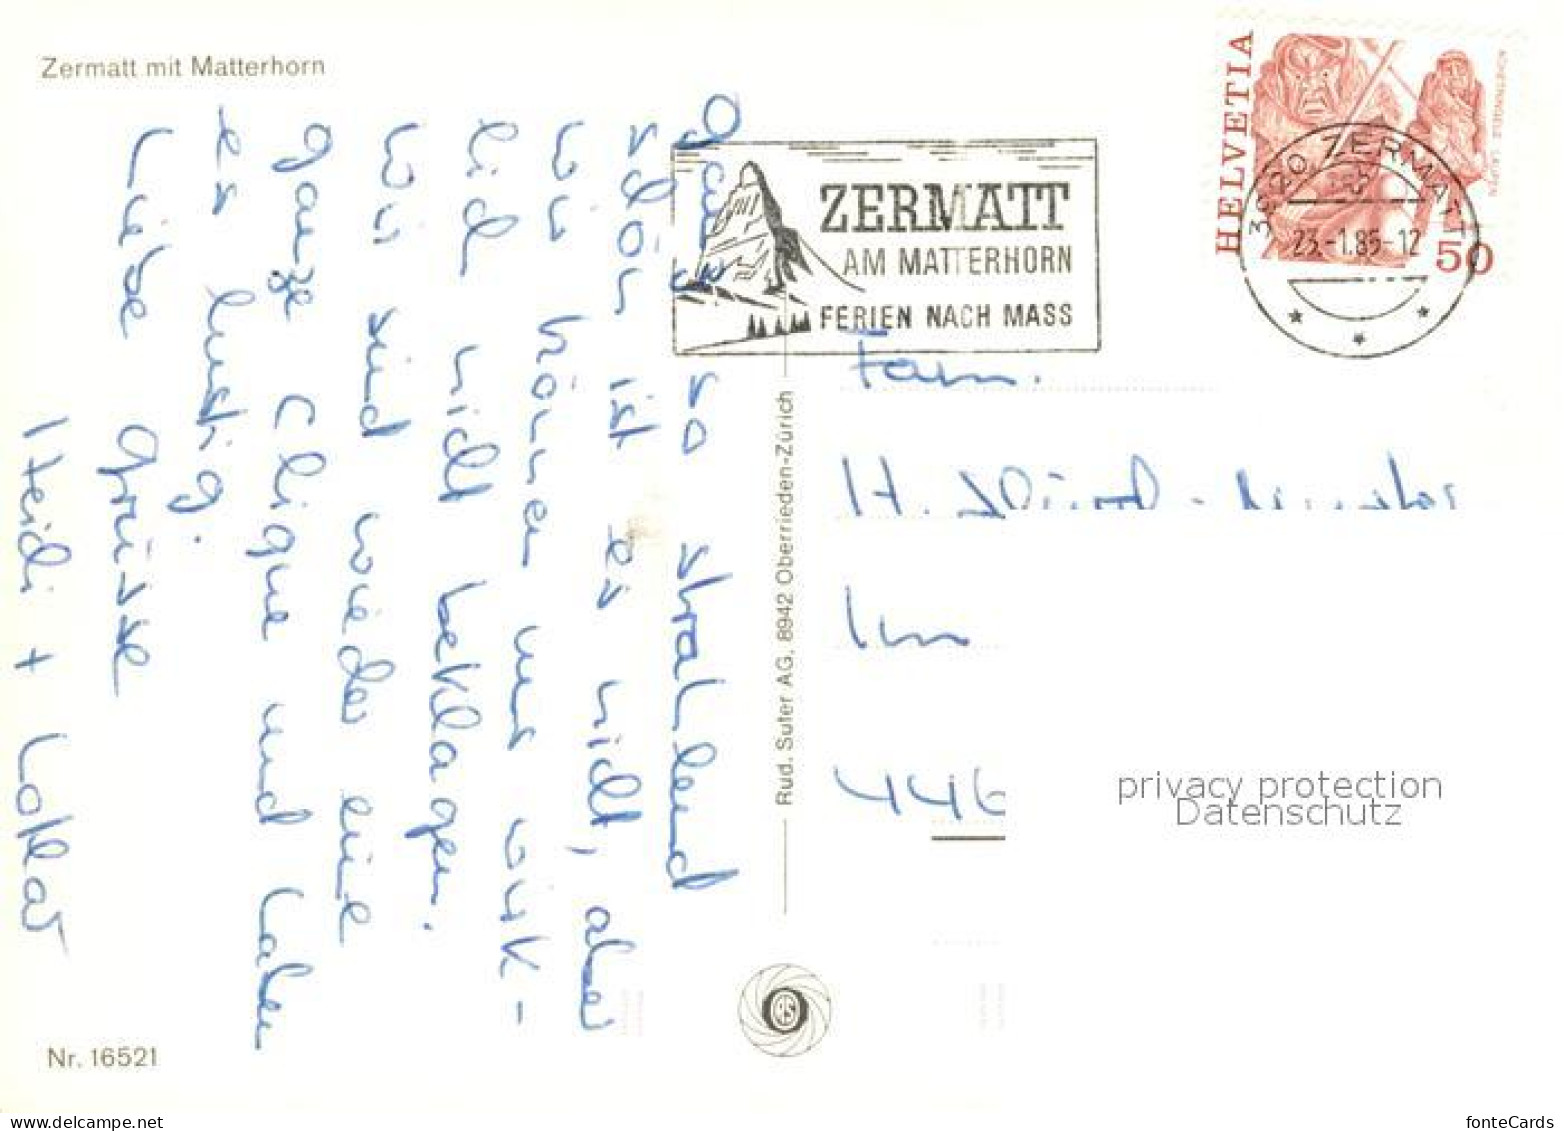 Zermatt mit Matterhorn
Ganz so strahlend
schön ist es nicht, aber
wir können uns wirk-
lich nicht beklagen.
Wir sind wieder eine
ganze Clique und haben
es lustig.
Liebe Grüsse
Heidi + Lothar
Nr. 16521
Rud. Suter AG, 8942 Oberrieden-Zürich
ZERMATT
AM MATTERHORN
FERIEN NACH MASS
HELVETIA
50
3920 ZERMATT
23.-1.85-12
Fam.
H.
446
privacy protection
Datenschutz
delcampe.net
fonteCards